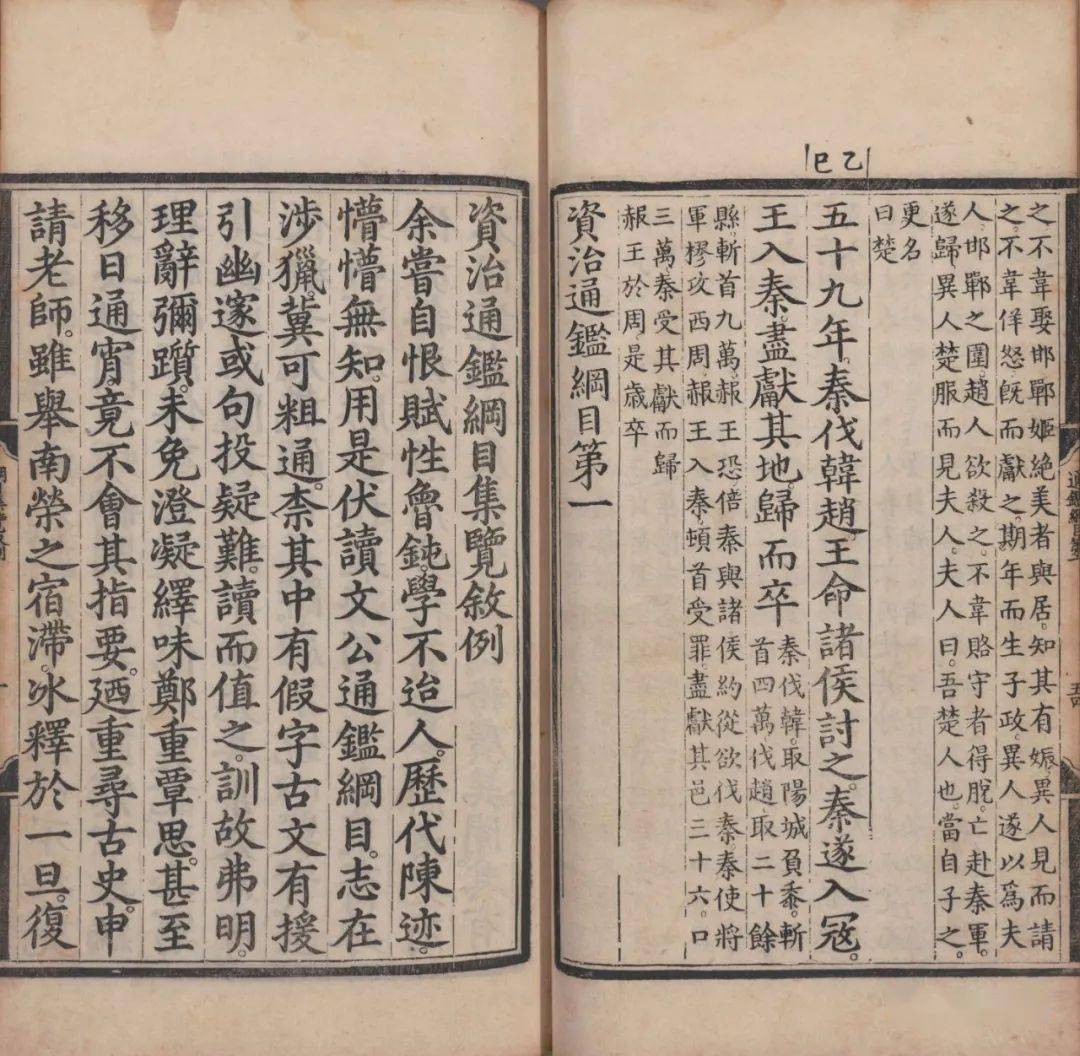 乙巳
之不韋娶邯鄲姬絶美者與居知其有娠異人見而請
之不韋佯怒既而獻之期年而生子政異人遂以爲夫
人邯鄲之圍趙人欲殺之不韋賂守者得脫亡赴秦軍
遂歸異人楚服而見夫人夫人曰吾楚人也當自子之
更名
曰楚
五十九年秦伐韓趙王命諸侯討之秦遂入寇
王入秦盡獻其地歸而卒
秦伐韓取陽城負黍斬
首四萬伐趙取二十餘
縣斬首九萬赧王恐倍秦與諸侯約從欲伐秦秦使將
軍摎攻西周赧王入秦頓首受罪盡獻其邑三十六口
三萬秦受其獻而歸
赧王於周是歲卒
資治通鑑綱目第一
資治通鑑綱目集覽敘例
余嘗自恨賦性魯鈍學不迨人歷代陳迹
懵懵無知用是伏讀文公通鑑綱目志在
涉獵冀可粗通柰其中有假字古文有援
引幽邃或句投疑難讀而值之訓故弗明
理辭彌躓未免澄凝繹味鄭重覃思甚至
移日通宵竟不會其指要廼重尋古史申
請老師雖舉南榮之宿滯冰釋於一旦復